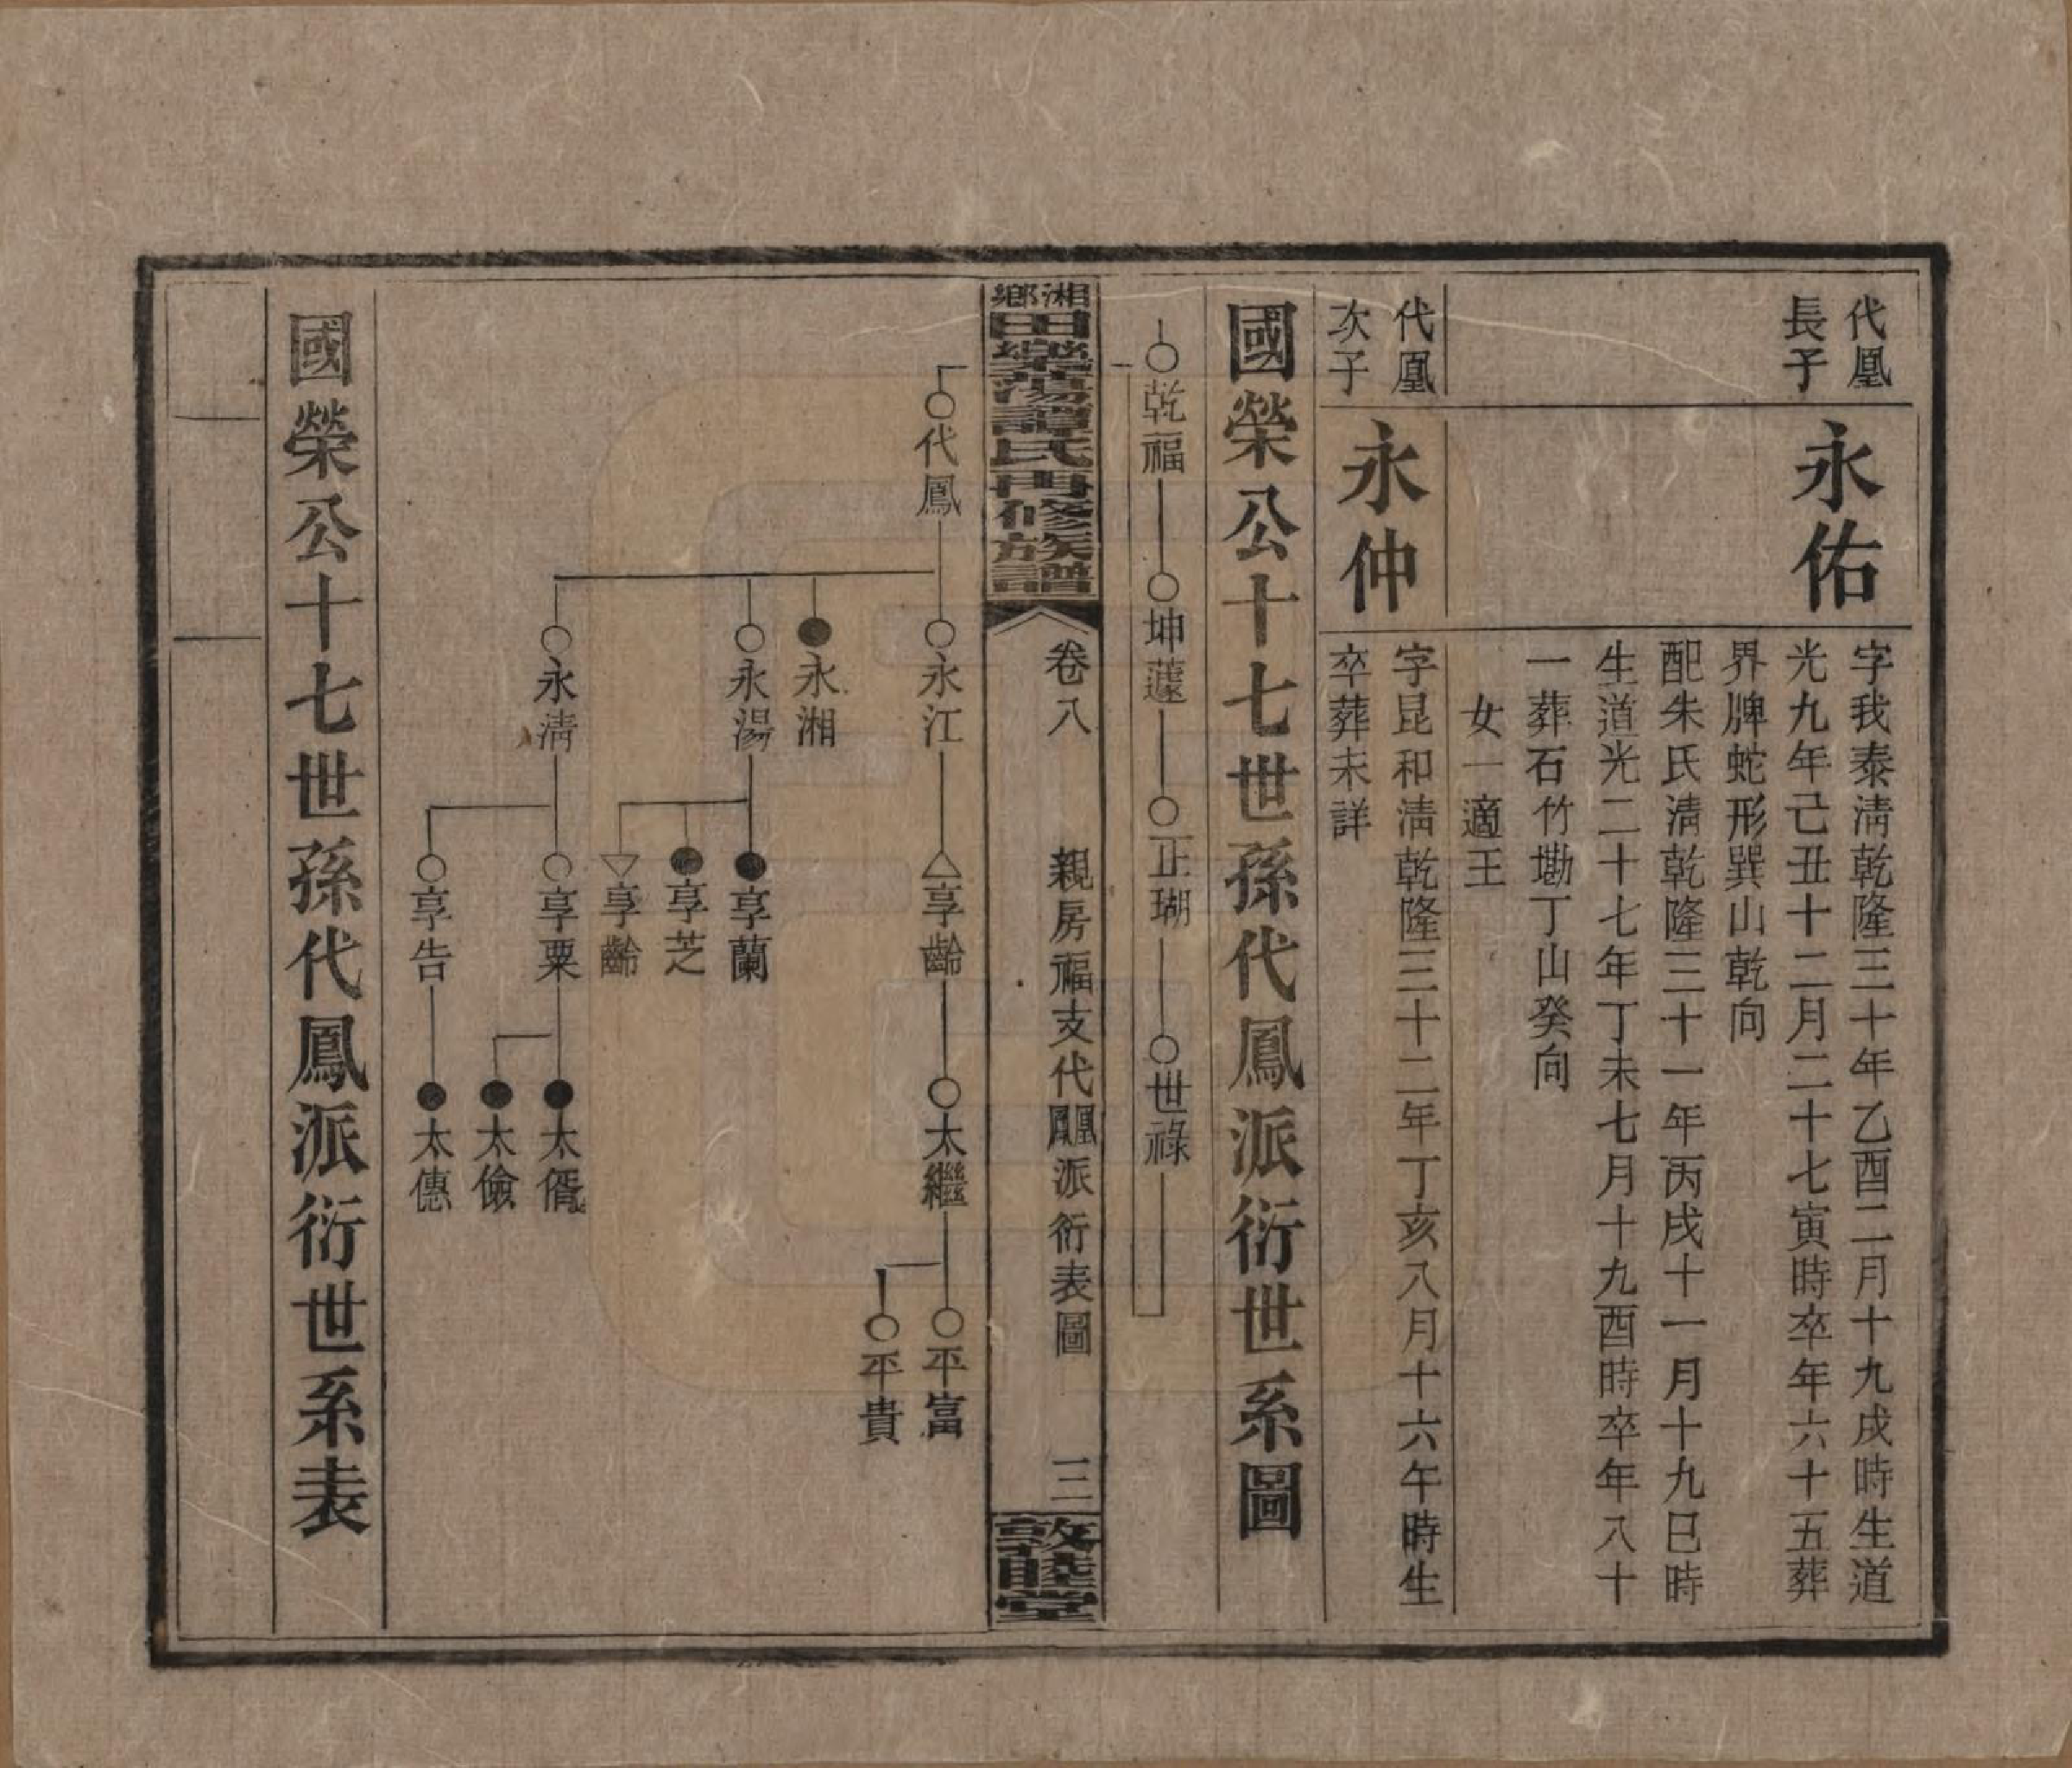 代凰
長子
永佑
字我泰淸乾隆三十年乙酉二月十九戌時生道
光九年己丑十二月二十七寅時卒年六十五葬
界牌蛇形巽山乾向
配朱氏淸乾隆三十一年丙戌十一月十九巳時
生道光二十七年丁未七月十九酉時卒年八十
一葬石竹塝丁山癸向
女一適王
代凰
次子
永仲
字昆和淸乾隆三十二年丁亥八月十六午時生
卒葬未詳
國榮公十七世孫代鳳派衍世系圖
乾福
坤蘧
正瑚
世祿
湘鄉
田樂蕩譚氏再修族譜
卷八
親房福支代鳳凰派衍表圖
三
敦睦堂
代鳳
永江
永湘
永湯
永淸
享齡
享蘭
享芝
享齡
享粟
享告
太繼
太偦
太儉
太僡
平富
平貴
國榮公十七世孫代鳳派衍世系表